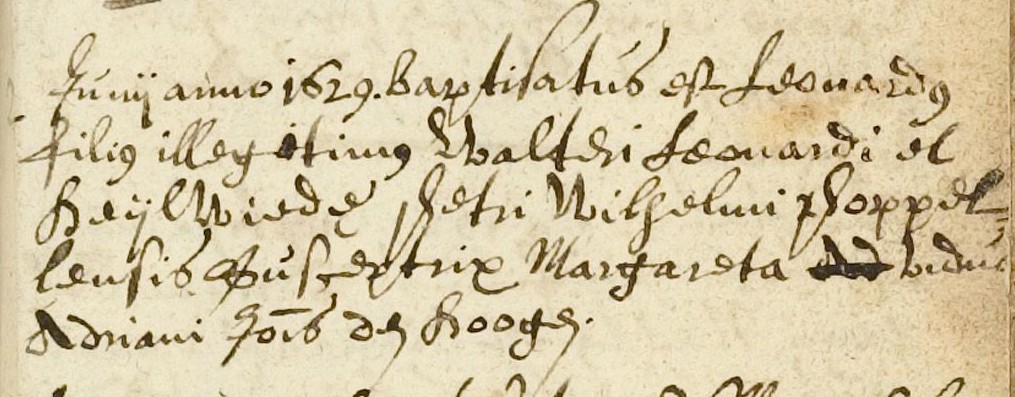 Junij anno 1629. baptisatus est Leonardus
filius illegitimus Walteri Leonardi et
Heijlwiedę Petri Wilhelmi Poppel=
lensis Susceptrix Margareta vidua
Adriani Jois de Hooge.